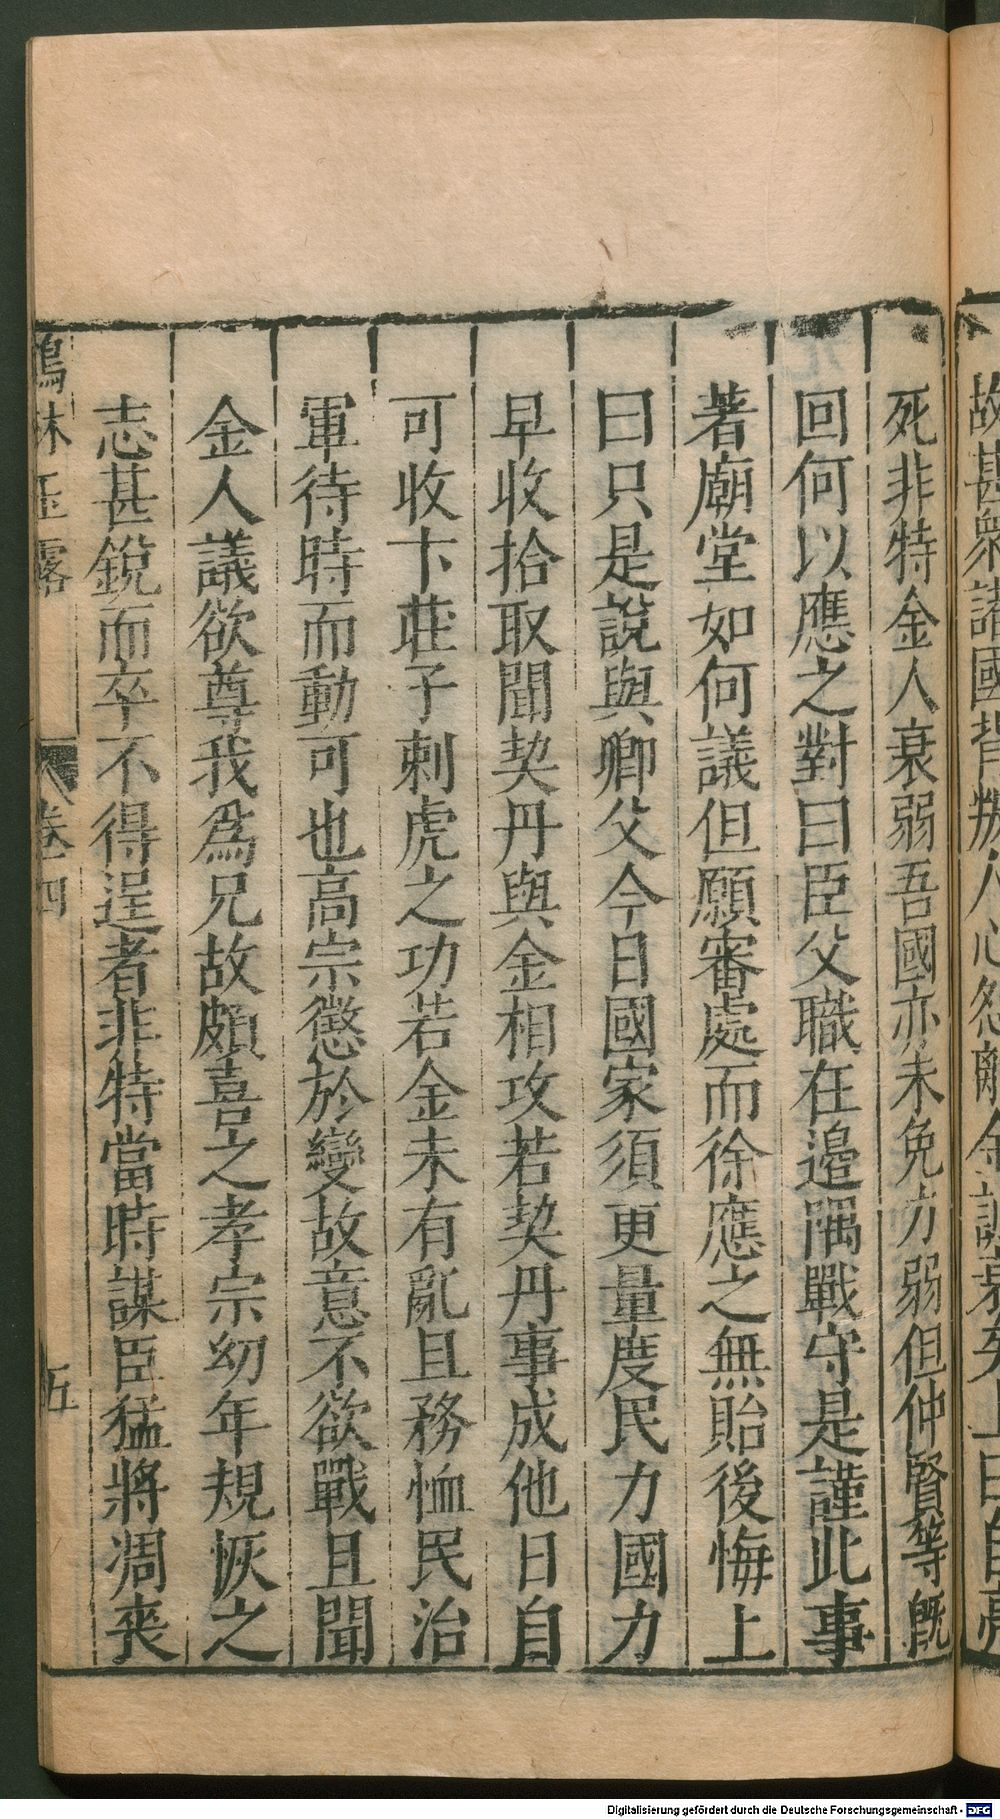 故甚衆諸國皆叛人心怨離金誠衰矣上曰自亮
死非特金人衰弱吾國亦未免力弱但仲賢等旣
回何以應之對曰臣父職在邊隅戰守是謹此事
著廟堂如何議但願審處而徐應之無貽後悔上
曰只是說與卿父今日國家須更量度民力國力
早收拾取聞契丹與金相攻若契丹事成他日自
可收卞莊子刺虎之功若金未有亂且務恤民治
軍待時而動可也高宗懲於變故意不欲戰且聞
金人議欲尊我爲兄故頗喜之孝宗幼年規恢之
志甚銳而卒不得逞者非特當時謀臣猛將凋喪
鶴林玉露 卷四 五
Digitalisierung gefördert durch die Deutsche Forschungsgemeinschaft - DFG